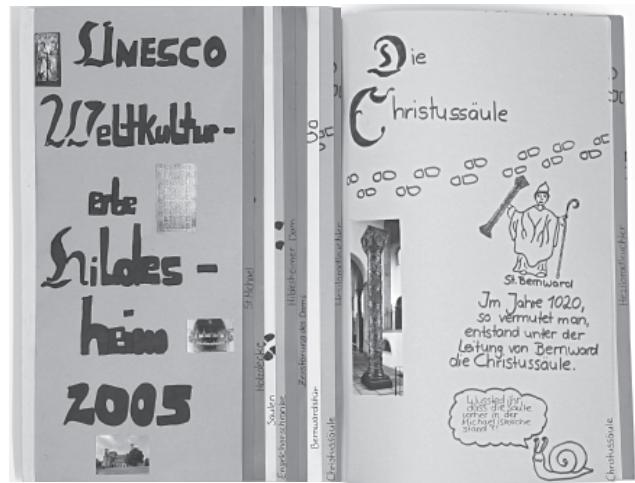 UNESCO
Weltkultur-
erbe
Hildes-
heim
2005
St. Michael
Holzdecke
Säulen
Engelchorschranke
Hildesheimer Dom
Zerstörung des Doms
Bernwardstür
Christussäule
Die
Christussäule
St. Bernward
Im Jahre 1020,
so vermutet man,
entstand unter der
Leitung von Bernward
die Christussäule.
Wussted ihr,
dass die Säule
vorher in der
Michaeliskirche
stand?
Christussäule